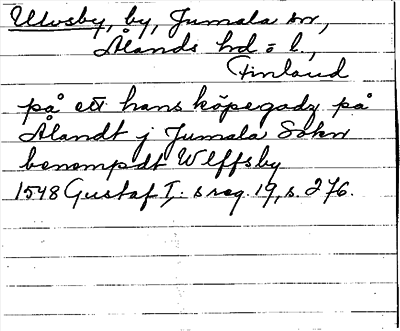 Ulvsby, by, Jumala sn,
Ålands hd o. l.,
Finland
på ett hans köpegodz på
Ålandt j Jumala Sokn
benempdt Wlffsby
1548 Gustaf I:s reg. 19, s. 276.